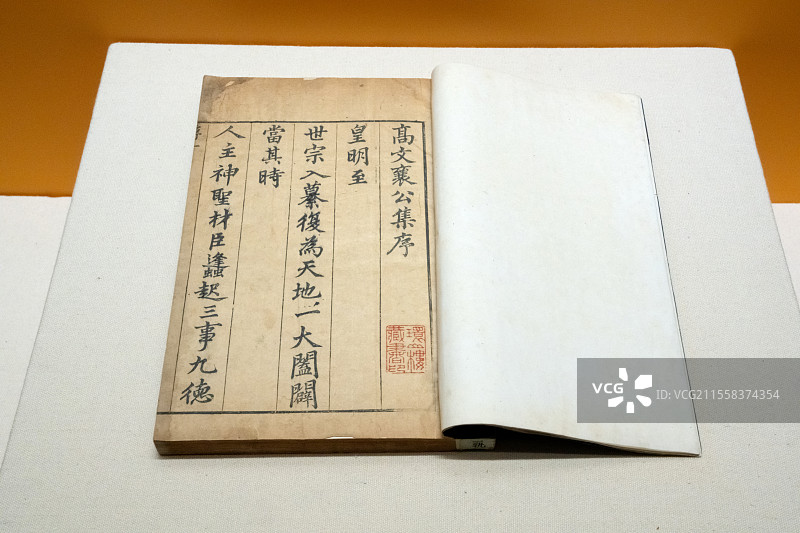 高文襄公集序
皇明至
世宗入纂復為天地一大闔闢
當其時
人主神聖材臣蠭起三事九德
VCG
VCG
ID: VCG211558374354